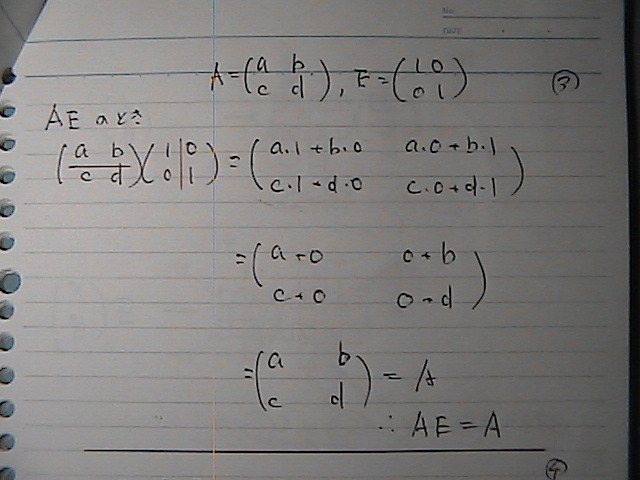 No.
DATE
A=(a b
c d), E=(1 0
0 1) ③
AEのとき
(a b
c d)(1 0
0 1)=(a・1+b・0 a・0+b・1
c・1+d・0 c・0+d・1)
=(a+0 0+b
c+0 0+d)
=(a b
c d)=A
∴ AE=A
④